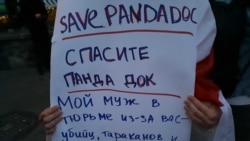 SAVE PANDADOC
СПАСИТЕ
ПАНДА ДОК
МОЙ МУЖ В
ТЮРЬМЕ ИЗ-ЗА ВАС-
УБИЙЦ, ТАРАКАНОВ И